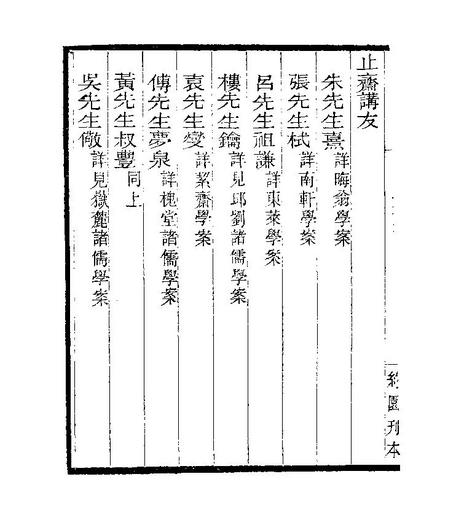 止齋講友
朱先生熹詳晦翁學案
張先生栻詳南軒學案
呂先生祖謙詳東萊學案
樓先生鑰詳見邱劉諸儒學案
袁先生燮詳絜齋學案
傅先生夢泉詳槐堂諸儒學案
黃先生叔豐同上
吳先生儆詳見嶽麓諸儒學案
約園刊本